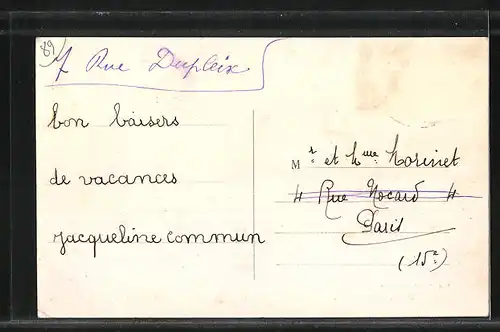 89
f Rue Dupleix
bon baisers
de vacances
jacqueline commun
Mr et Mme Morinet
4 Rue Nocard 4
Paris
(15e)